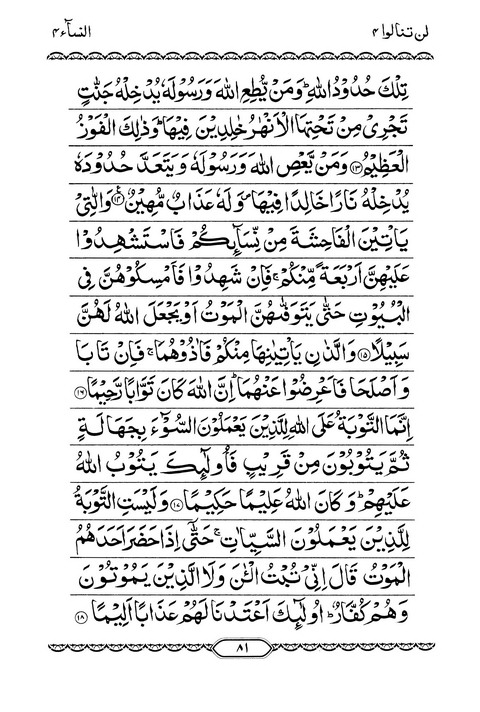 لن تنالوا ۴ النسآء ۴
تِلْكَ حُدُوْدُ اللّٰهِ ؕ وَمَنْ يُّطِعِ اللّٰهَ وَرَسُوْلَهٗ يُدْخِلْهُ جَنّٰتٍ
تَجْرِىْ مِنْ تَحْتِهَا الْاَنْهٰرُ خٰلِدِيْنَ فِيْهَا ؕ وَذٰلِكَ الْفَوْزُ
الْعَظِيْمُ ﴿۱۳﴾ وَمَنْ يَّعْصِ اللّٰهَ وَرَسُوْلَهٗ وَيَتَعَدَّ حُدُوْدَهٗ
يُدْخِلْهُ نَارًا خَالِدًا فِيْهَا ۪ وَلَهٗ عَذَابٌ مُّهِيْنٌ ﴿۱۴﴾ ع وَالّٰتِىْ
يَاْتِيْنَ الْفَاحِشَةَ مِنْ نِّسَآئِكُمْ فَاسْتَشْهِدُوْا
عَلَيْهِنَّ اَرْبَعَةً مِّنْكُمْ ۚ فَاِنْ شَهِدُوْا فَاَمْسِكُوْهُنَّ فِى
الْبُيُوْتِ حَتّٰى يَتَوَفّٰهُنَّ الْمَوْتُ اَوْ يَجْعَلَ اللّٰهُ لَهُنَّ
سَبِيْلًا ﴿۱۵﴾ وَالَّذٰنِ يَاْتِيٰنِهَا مِنْكُمْ فَاٰذُوْهُمَا ۚ فَاِنْ تَابَا
وَاَصْلَحَا فَاَعْرِضُوْا عَنْهُمَا ؕ اِنَّ اللّٰهَ كَانَ تَوَّابًا رَّحِيْمًا ﴿۱۶﴾
اِنَّمَا التَّوْبَةُ عَلَى اللّٰهِ لِلَّذِيْنَ يَعْمَلُوْنَ السُّوْٓءَ بِجَهَالَةٍ
ثُمَّ يَتُوْبُوْنَ مِنْ قَرِيْبٍ فَاُولٰٓئِكَ يَتُوْبُ اللّٰهُ
عَلَيْهِمْ ؕ وَكَانَ اللّٰهُ عَلِيْمًا حَكِيْمًا ﴿۱۷﴾ وَلَيْسَتِ التَّوْبَةُ
لِلَّذِيْنَ يَعْمَلُوْنَ السَّيِّاٰتِ ۚ حَتّٰۤى اِذَا حَضَرَ اَحَدَهُمُ
الْمَوْتُ قَالَ اِنِّىْ تُبْتُ الْئٰنَ وَلَا الَّذِيْنَ يَمُوْتُوْنَ
وَهُمْ كُفَّارٌ ؕ اُولٰٓئِكَ اَعْتَدْنَا لَهُمْ عَذَابًا اَلِيْمًا ﴿۱۸﴾
۸۱